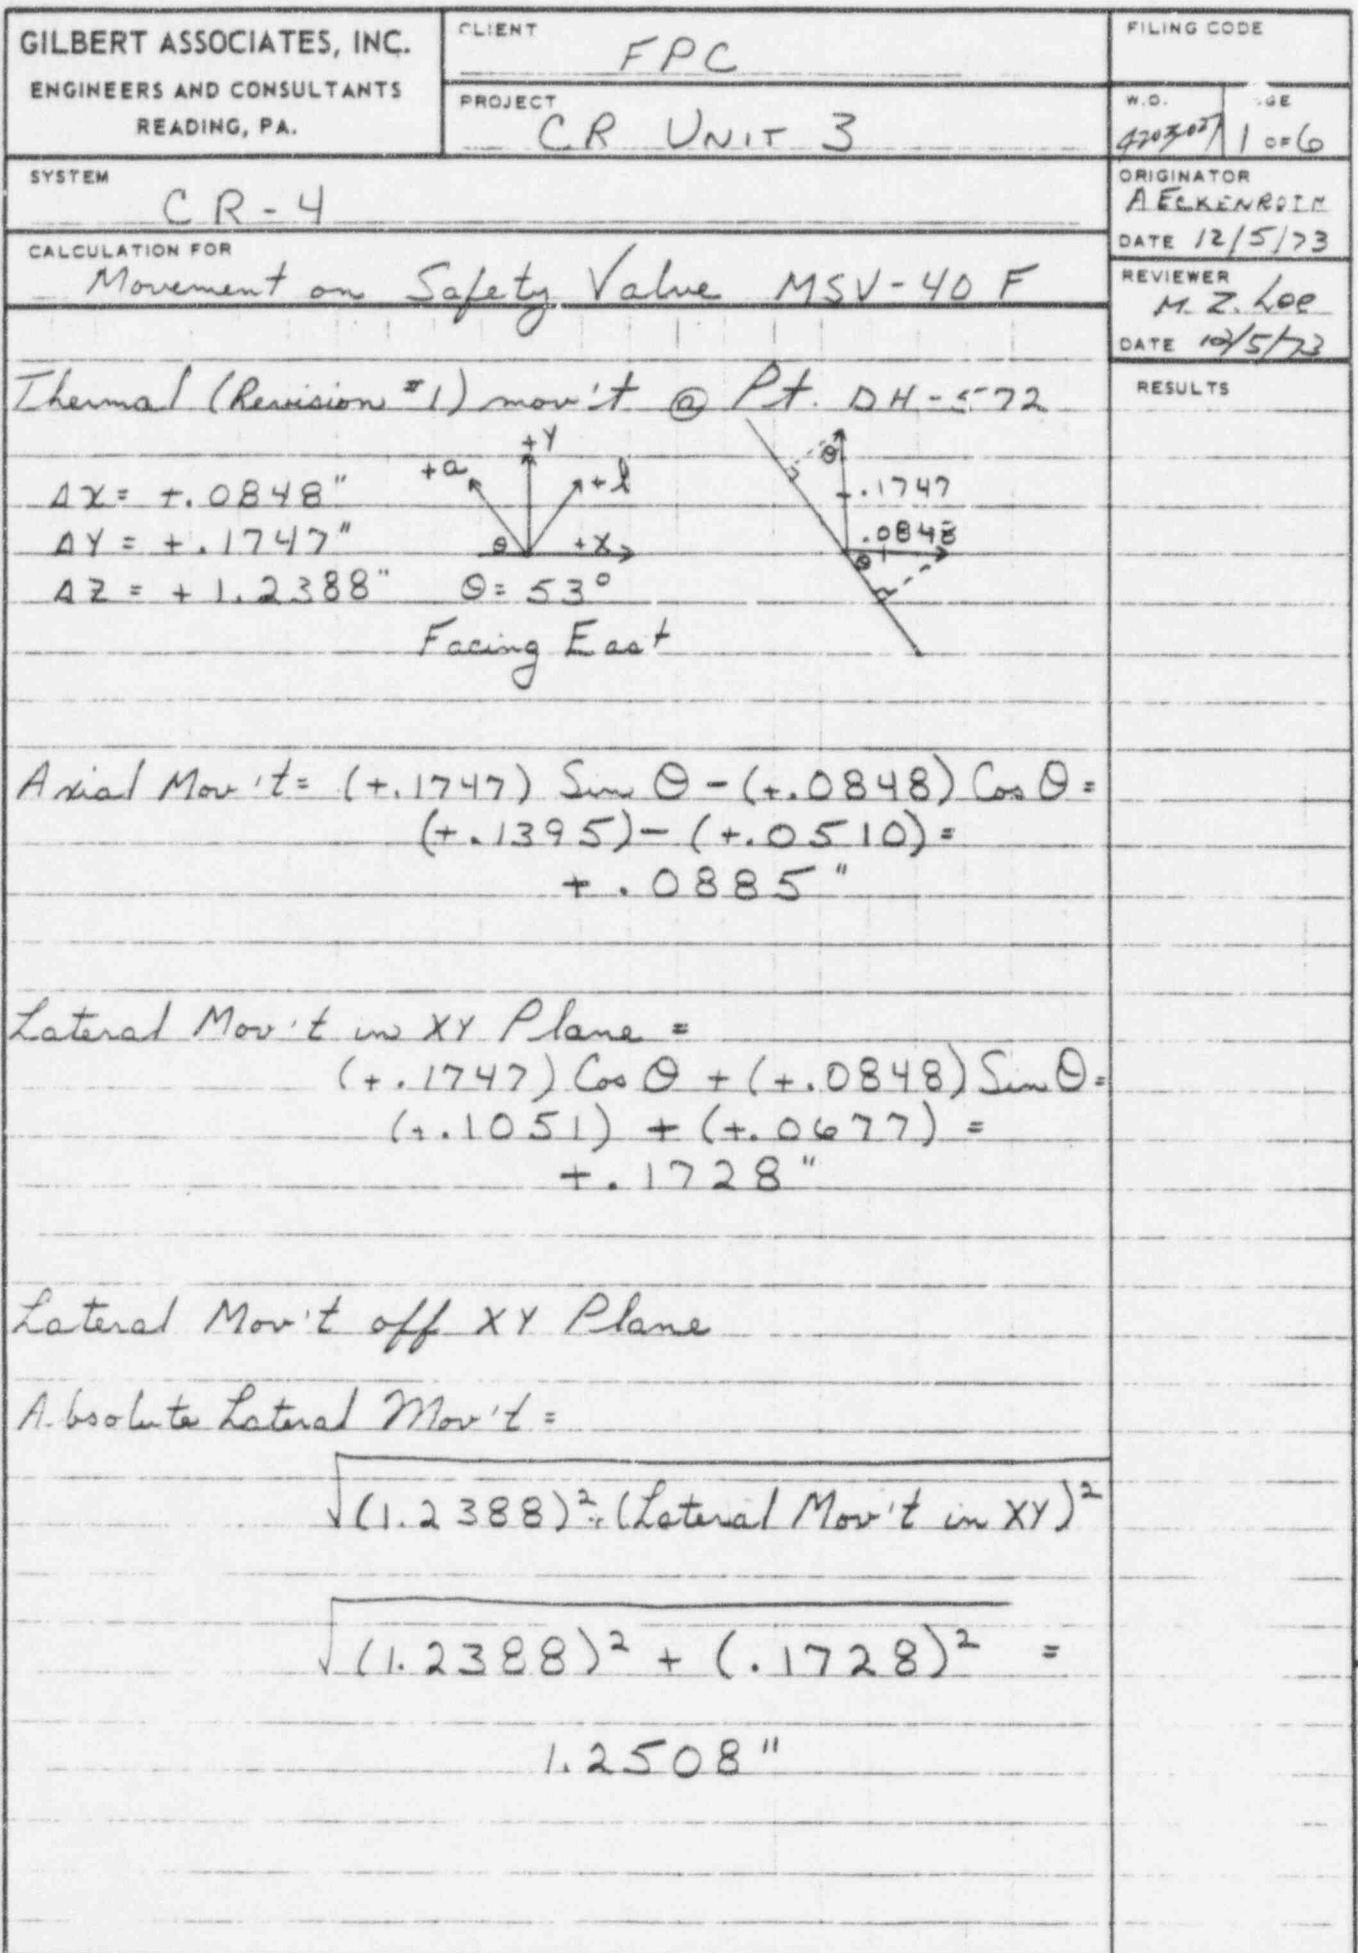 GILBERT ASSOCIATES, INC.
ENGINEERS AND CONSULTANTS
READING, PA.
CLIENT
FPC
PROJECT
CR UNIT 3
FILING CODE
W.O.
GE
4203-027
1 OF 6
SYSTEM
CR-4
ORIGINATOR
A ECKENROTH
DATE 12/5/73
CALCULATION FOR
Movement on Safety Valve MSV-40 F
REVIEWER
M. Z. Lee
DATE 12/5/73
RESULTS
Thermal (Revision #1) mov't @ Pt. DH-572
ΔX = +.0848"
ΔY = +.1747"
ΔZ = +1.2388"
+a
+Y
+l
θ
+X
θ = 53°
Facing East
θ
.1747
.0848
θ
Axial Mov't = (+.1747) Sin θ - (+.0848) Cos θ =
(+.1395) - (+.0510) =
+.0885"
Lateral Mov't in XY Plane =
(+.1747) Cos θ + (+.0848) Sin θ =
(+.1051) + (+.0677) =
+.1728"
Lateral Mov't off XY Plane
Absolute Lateral Mov't =
√(1.2388)² + (Lateral Mov't in XY)²
√(1.2388)² + (.1728)² =
1.2508"